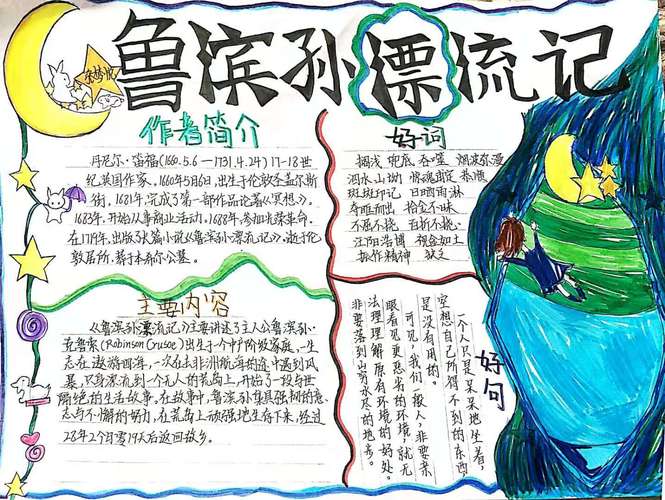 鲁滨孙漂流记
作者简介
丹尼尔·笛福(1660.5.6—1731.4.24)17-18世
纪英国作家。1660年5月6日,出生于伦敦圣盖尔斯
街。1681年,完成了第一部作品论著《冥想》。
1683年,开始从事商业活动。1688年,参加光荣革命。
在1719年,出版了长篇小说《鲁滨孙漂流记》。逝于伦
敦居所,葬于本希尔公墓。
好词
搁浅 兜底 吞噬 烟波弥漫
泗水 山坳 惊魂甫定 恭顺
斑斑印记 日晒雨淋
夺眶而出 拾金不昧
不屈不挠 百折不挠
汪阳浩博 视金如土
振作精神
主要内容
《鲁滨孙漂流记》主要讲述了主人公鲁滨孙·
克鲁索(Robinson Crusoe)出生于个中产阶级家庭,一生
志在遨游四海,一次在去非洲航海的途中遇到风
暴,只身漂流到一个无人的荒岛上,开始了一段与世
隔绝的生活故事。在故事中,鲁滨孙凭其强韧的意
志与不懈的努力,在荒岛上顽强地生存下来,经过
28年2个月零19天后返回故乡。
好句
一个人只是呆呆地坐着,
空想自己所得不到的东西,
是没有用的。
可见,我们一般人,非要亲
眼看见更恶劣的环境,就无
法理解原有环境的好处。
非要落到山穷水尽的地步。